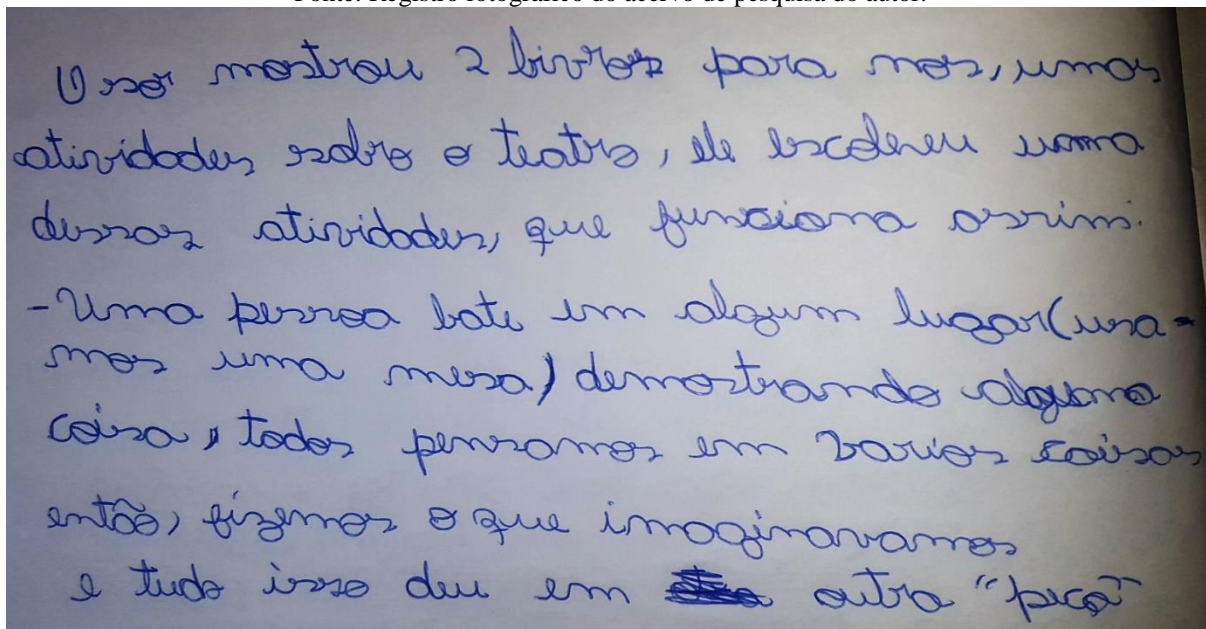 Fonte: Registro fotográfico do acervo de pesquisa do autor.
O sor mostrou 2 livros para nos, umas
atividades sobre o teatro, ele escolheu uma
dessas atividades, que funciona assim:
- Uma pessoa bate em algum lugar (usa-
mos uma mesa) demostrando alguma
coisa, todos pensamos em varias coisas
então, fizemos o que imaginavamos
e tudo isso deu em outra "peça"